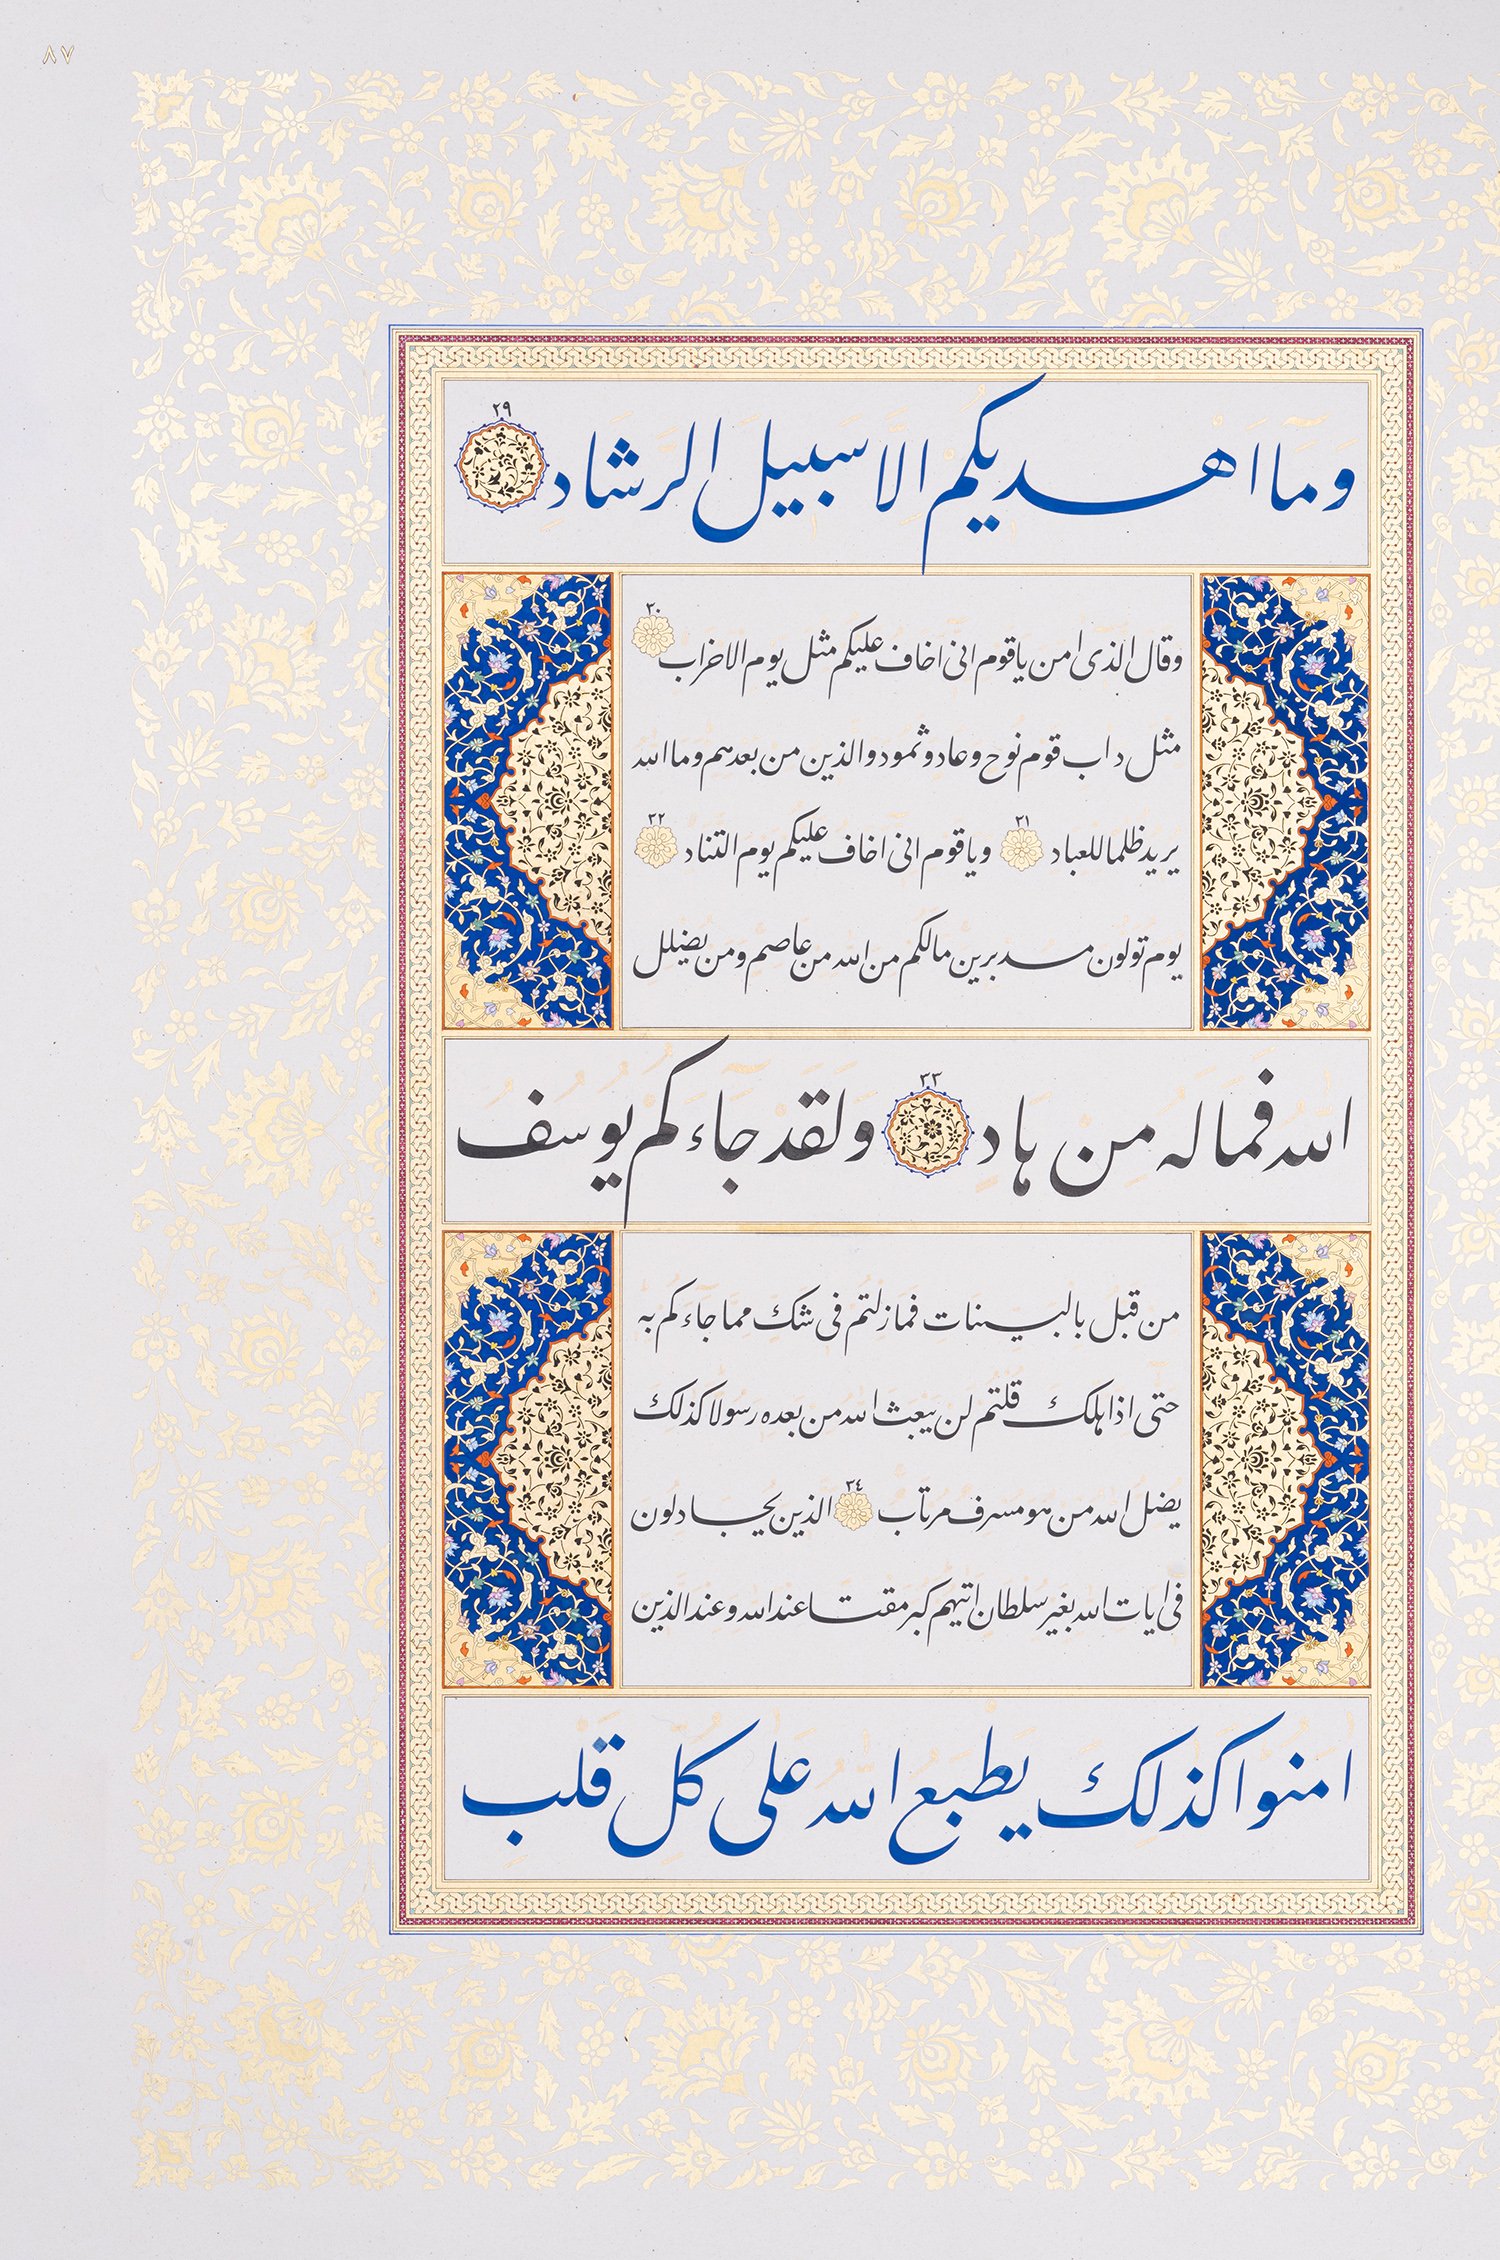 ٨٧
وما اهديكم الا سبيل الرشاد ٢٩
وقال الذى امن ياقوم انى اخاف عليكم مثل يوم الاحزاب ٣٠
مثل داب قوم نوح وعاد وثمود والذين من بعدهم وما الله
يريد ظلما للعباد ٣١ وياقوم انى اخاف عليكم يوم التناد ٣٢
يوم تولون مدبرين مالكم من الله من عاصم ومن يضلل
الله فماله من هاد ٣٣ ولقد جاءكم يوسف
من قبل بالبينات فمازلتم فى شك مما جاءكم به
حتى اذا هلك قلتم لن يبعث الله من بعده رسولا كذلك
يضل الله من هو مسرف مرتاب ٣٤ الذين يجادلون
فى ايات الله بغير سلطان اتيهم كبر مقتا عند الله وعند الذين
امنوا كذلك يطبع الله على كل قلب